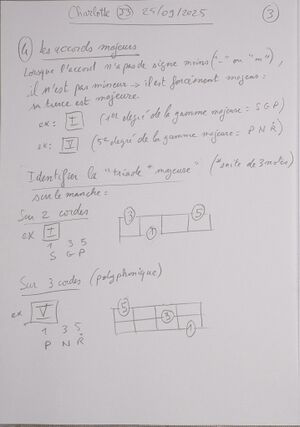 Charlotte J3 25/09/2025 3
4 les accords majeurs
Lorsque l'accord n'a pas de signe moins ("-" ou "m"),
il n'est pas mineur → il est forcément majeur :
sa tierce est majeure.
ex : I (1er degré de la gamme majeure = S G P)
ex : V (5e degré de la gamme majeure = P N Ṙ)
Identifier la "triade* majeure" (*suite de 3 notes)
sur le manche :
Sur 2 cordes
ex I 3 5
1 3 5 1
S G P
Sur 3 cordes (polyphonique)
ex V 5
1 3 5 3
P N Ṙ 1